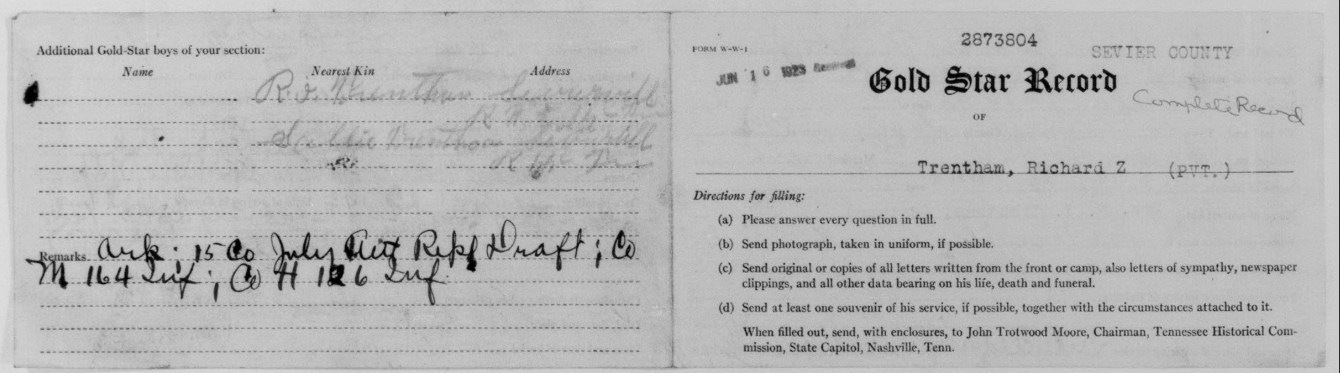 Additional Gold-Star boys of your section:
Name Nearest Kin Address
R. Trentham
Sallie Trentham
Remarks Ark; 15 Co July Repl Draft; Co
M 164 Inf; Co H 126 Inf
FORM W-W-1
2873804
SEVIER COUNTY
JUN 16 1923 Received
Gold Star Record
Complete Record
OF
Trentham, Richard Z (PVT.)
Directions for filling:
(a) Please answer every question in full.
(b) Send photograph, taken in uniform, if possible.
(c) Send original or copies of all letters written from the front or camp, also letters of sympathy, newspaper
clippings, and all other data bearing on his life, death and funeral.
(d) Send at least one souvenir of his service, if possible, together with the circumstances attached to it.
When filled out, send, with enclosures, to John Trotwood Moore, Chairman, Tennessee Historical Com-
mission, State Capitol, Nashville, Tenn.